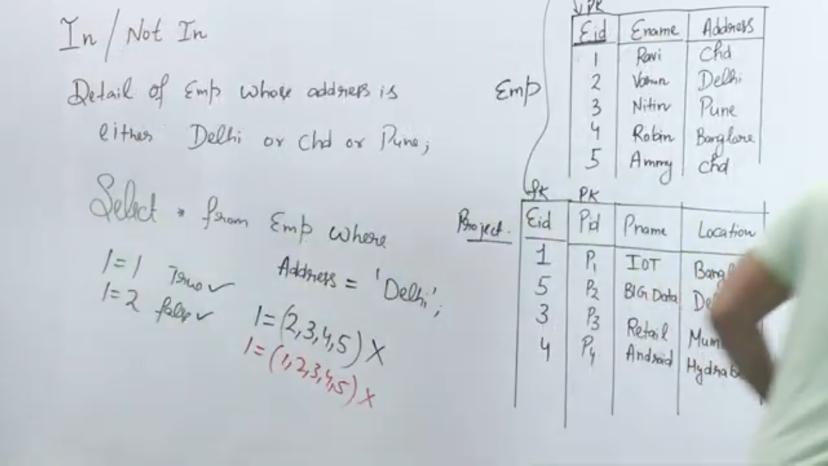 In / Not In
Detail of Emp whose address is
either Delhi or Chd or Pune;
Select * from Emp where
Address = 'Delhi';
1=1 True ✓
1=2 false ✓
1=(2,3,4,5) X
1=(1,2,3,4,5) X
PK
Emp
Eid Ename Address
1 Ravi Chd
2 Varun Delhi
3 Nitin Pune
4 Robin Banglore
5 Ammy Chd
fK PK
Project
Eid Pid Pname Location
1 P1 IOT Bang
5 P2 BIG Data De
3 P3 Retail Mum
4 P4 Android Hydra